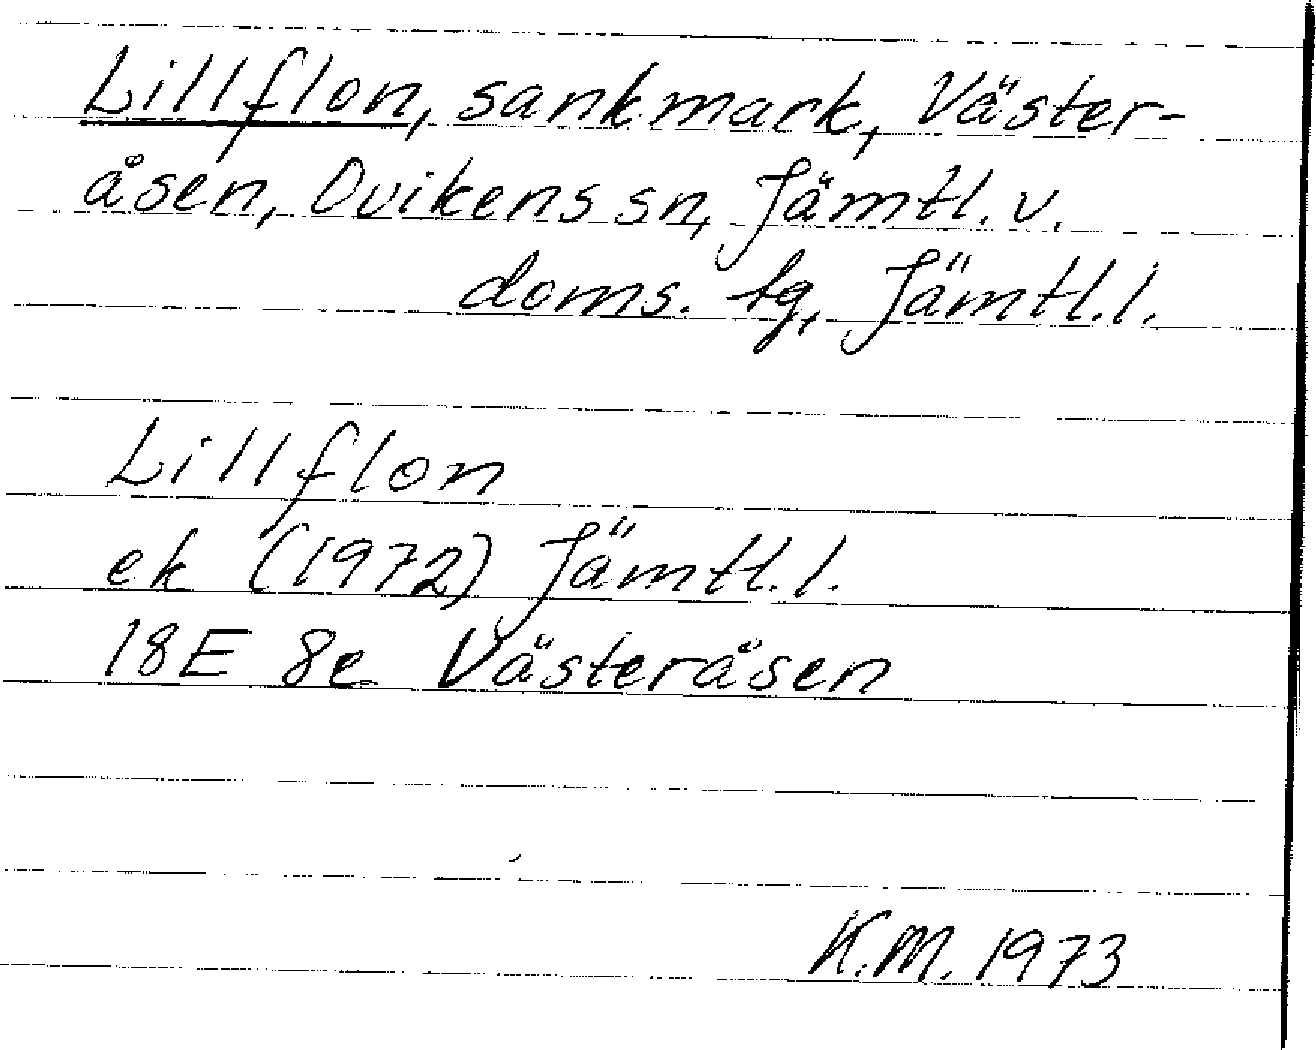 Lillflon, sankmark, Väster-
åsen, Ovikens sn, Jämtl. v.
doms. tg, Jämtl. l.
Lillflon
ek (1972) Jämtl. l.
18E 8e Västeråsen
K.M. 1973